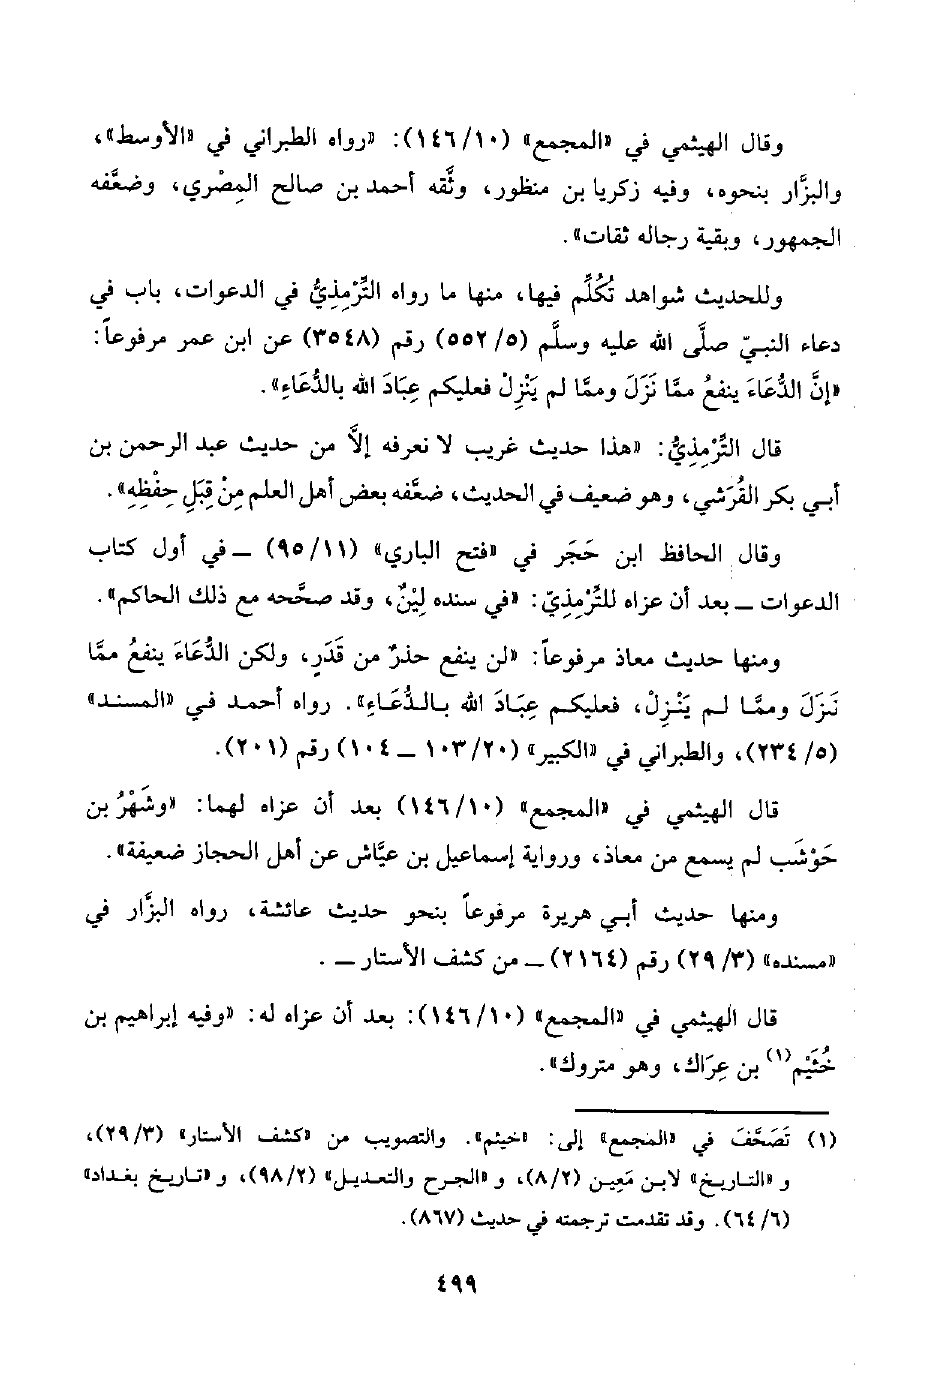 وقال الهيثمي في «المجمع» (١٤٦/١٠): «رواه الطبراني في «الأوسط»،
والبزَّار بنحوه، وفيه زكريا بن منظور، وثَّقه أحمد بن صالح المِصْري، وضعَّفه
الجمهور، وبقية رجاله ثقات».
وللحديث شواهد تُكُلِّم فيها، منها ما رواه التِّرْمِذِيُّ في الدعوات، باب في
دعاء النبيّ صلَّى الله عليه وسلَّم (٥٥٢/٥) رقم (٣٥٤٨) عن ابن عمر مرفوعاً:
«إنَّ الدُّعَاءَ ينفعُ ممَّا نَزَلَ وممَّا لم يَنْزِلْ فعليكم عِبَادَ الله بالدُّعَاءِ».
قال التِّرْمِذِيُّ: «هذا حديث غريب لا نعرفه إلَّا من حديث عبد الرحمن بن
أبي بكر القُرَشي، وهو ضعيف في الحديث، ضعَّفه بعض أهل العلم مِنْ قِبَلِ حِفْظِهِ».
وقال الحافظ ابن حَجَر في «فتح الباري» (٩٥/١١) ــ في أول كتاب
الدعوات ــ بعد أن عزاه للتِّرْمِذِيّ: «في سنده لِيْنٌ، وقد صحَّحه مع ذلك الحاكم».
ومنها حديث معاذ مرفوعاً: «لن ينفع حذرٌ من قَدَرٍ، ولكن الدُّعَاءَ ينفعُ ممَّا
نَزَلَ وممَّا لم يَنْزِلْ، فعليكم عِبَادَ الله بالدُّعَاءِ». رواه أحمد في «المسند»
(٢٣٤/٥)، والطبراني في «الكبير» (١٠٣/٢٠ ــ ١٠٤) رقم (٢٠١).
قال الهيثمي في «المجمع» (١٤٦/١٠) بعد أن عزاه لهما: «وشَهْرُ بن
حَوْشَب لم يسمع من معاذ، ورواية إسماعيل بن عيَّاش عن أهل الحجاز ضعيفة».
ومنها حديث أبي هريرة مرفوعاً بنحو حديث عائشة، رواه البزَّار في
«مسنده» (٢٩/٣) رقم (٢١٦٤) ــ من كشف الأستار ــ .
قال الهيثمي في «المجمع» (١٤٦/١٠): بعد أن عزاه له: «وفيه إبراهيم بن
خُثَيْم(١) بن عِرَاك، وهو متروك».
(١) تَصَحَّفَ في «المجمع» إلى: «خيثم». والتصويب من «كشف الأستار» (٢٩/٣)،
و «التاريخ» لابن مَعِين (٨/٢)، و «الجرح والتعديل» (٩٨/٢)، و «تاريخ بغداد»
(٦٤/٦). وقد تقدمت ترجمته في حديث (٨٦٧).
٤٩٩